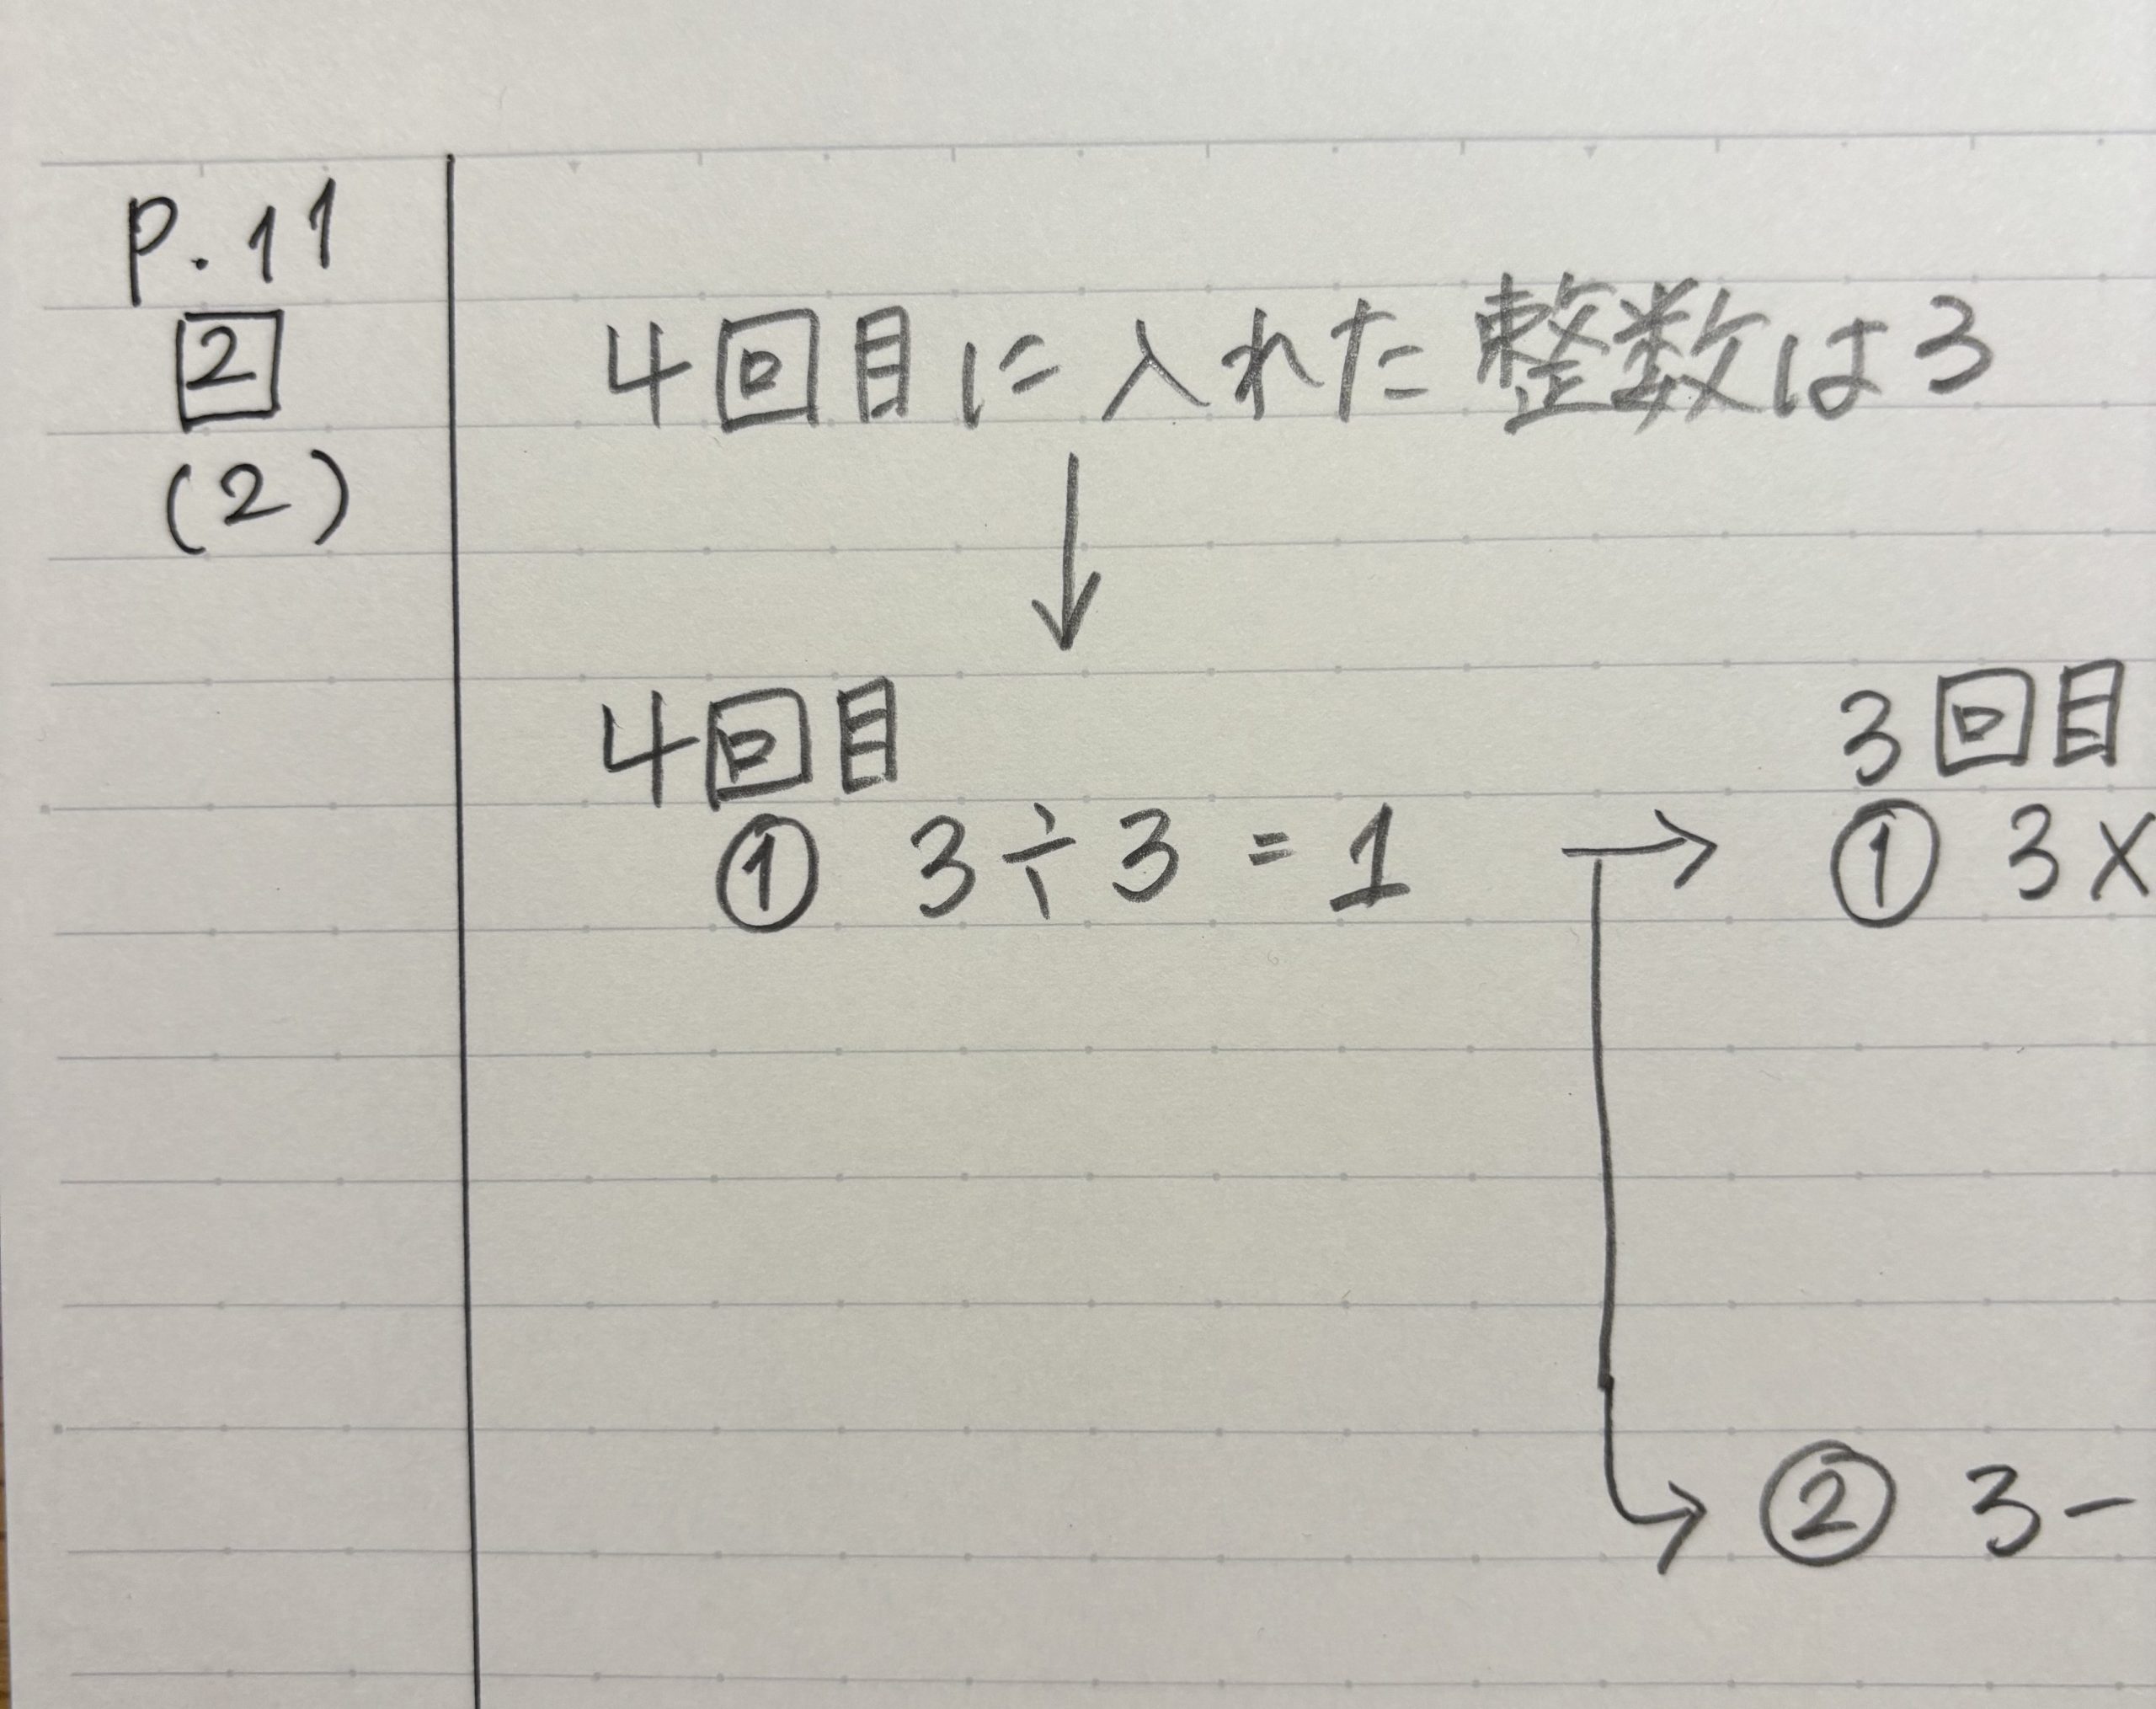 P.11
2
(2)
4回目に入れた整数は3
↓
4回目
① 3÷3=1 →
3回目
① 3×
② 3-